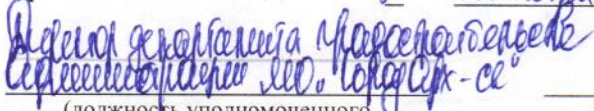 Директор департамента градостроительства
администрации МО "Город
(должность уполномоченного